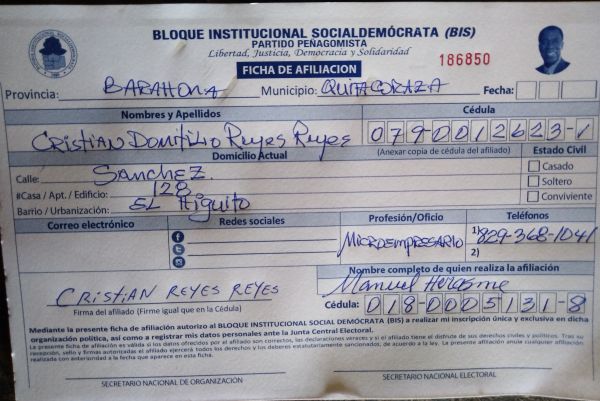 BLOQUE INSTITUCIONAL SOCIALDEMÓCRATA (BIS)
PARTIDO PEÑAGOMISTA
Libertad, Justicia, Democracia y Solidaridad
186850
FICHA DE AFILIACION
Provincia: BARAHONA Municipio: QUITACORAZA Fecha:
Nombres y Apellidos Cédula
CRISTIAN DOMITILIO Reyes Reyes 079-0012623-1
Domicilio Actual (Anexar copia de cédula del afiliado) Estado Civil
Calle: SANCHEZ. Casado
#Casa / Apt. / Edificio: 128 Soltero
Barrio / Urbanización: EL Higuito Conviviente
Correo electrónico Redes sociales Profesión/Oficio Teléfonos
MICROEMPRESARIO 1) 829-368-1041
2)
Nombre completo de quien realiza la afiliación
Manuel
CRISTIAN REYES REYES
Firma del afiliado (Firme igual que en la Cédula) Cédula: 018-0005131-8
Mediante la presente ficha de afiliación autorizo al BLOQUE INSTITUCIONAL SOCIAL DEMÓCRATA (BIS) a realizar mi inscripción única y exclusiva en dicha
organización política, así como a registrar mis datos personales ante la Junta Central Electoral.
La presente ficha de afiliación es válida si los datos ofrecidos por el afiliado son correctos, las declaraciones veraces y si el afiliado tiene el disfrute de sus derechos civiles y políticos. Tras su
recepción, sello y firmas autorizadas el afiliado ejercerá todos los derechos y los deberes estatutariamente sancionados, de acuerdo a la ley. La presente afiliación anula cualquier afiliación
realizada con anterioridad a la fecha que aparece en esta ficha.
SECRETARIO NACIONAL DE ORGANIZACIÓN SECRETARIO NACIONAL ELECTORAL